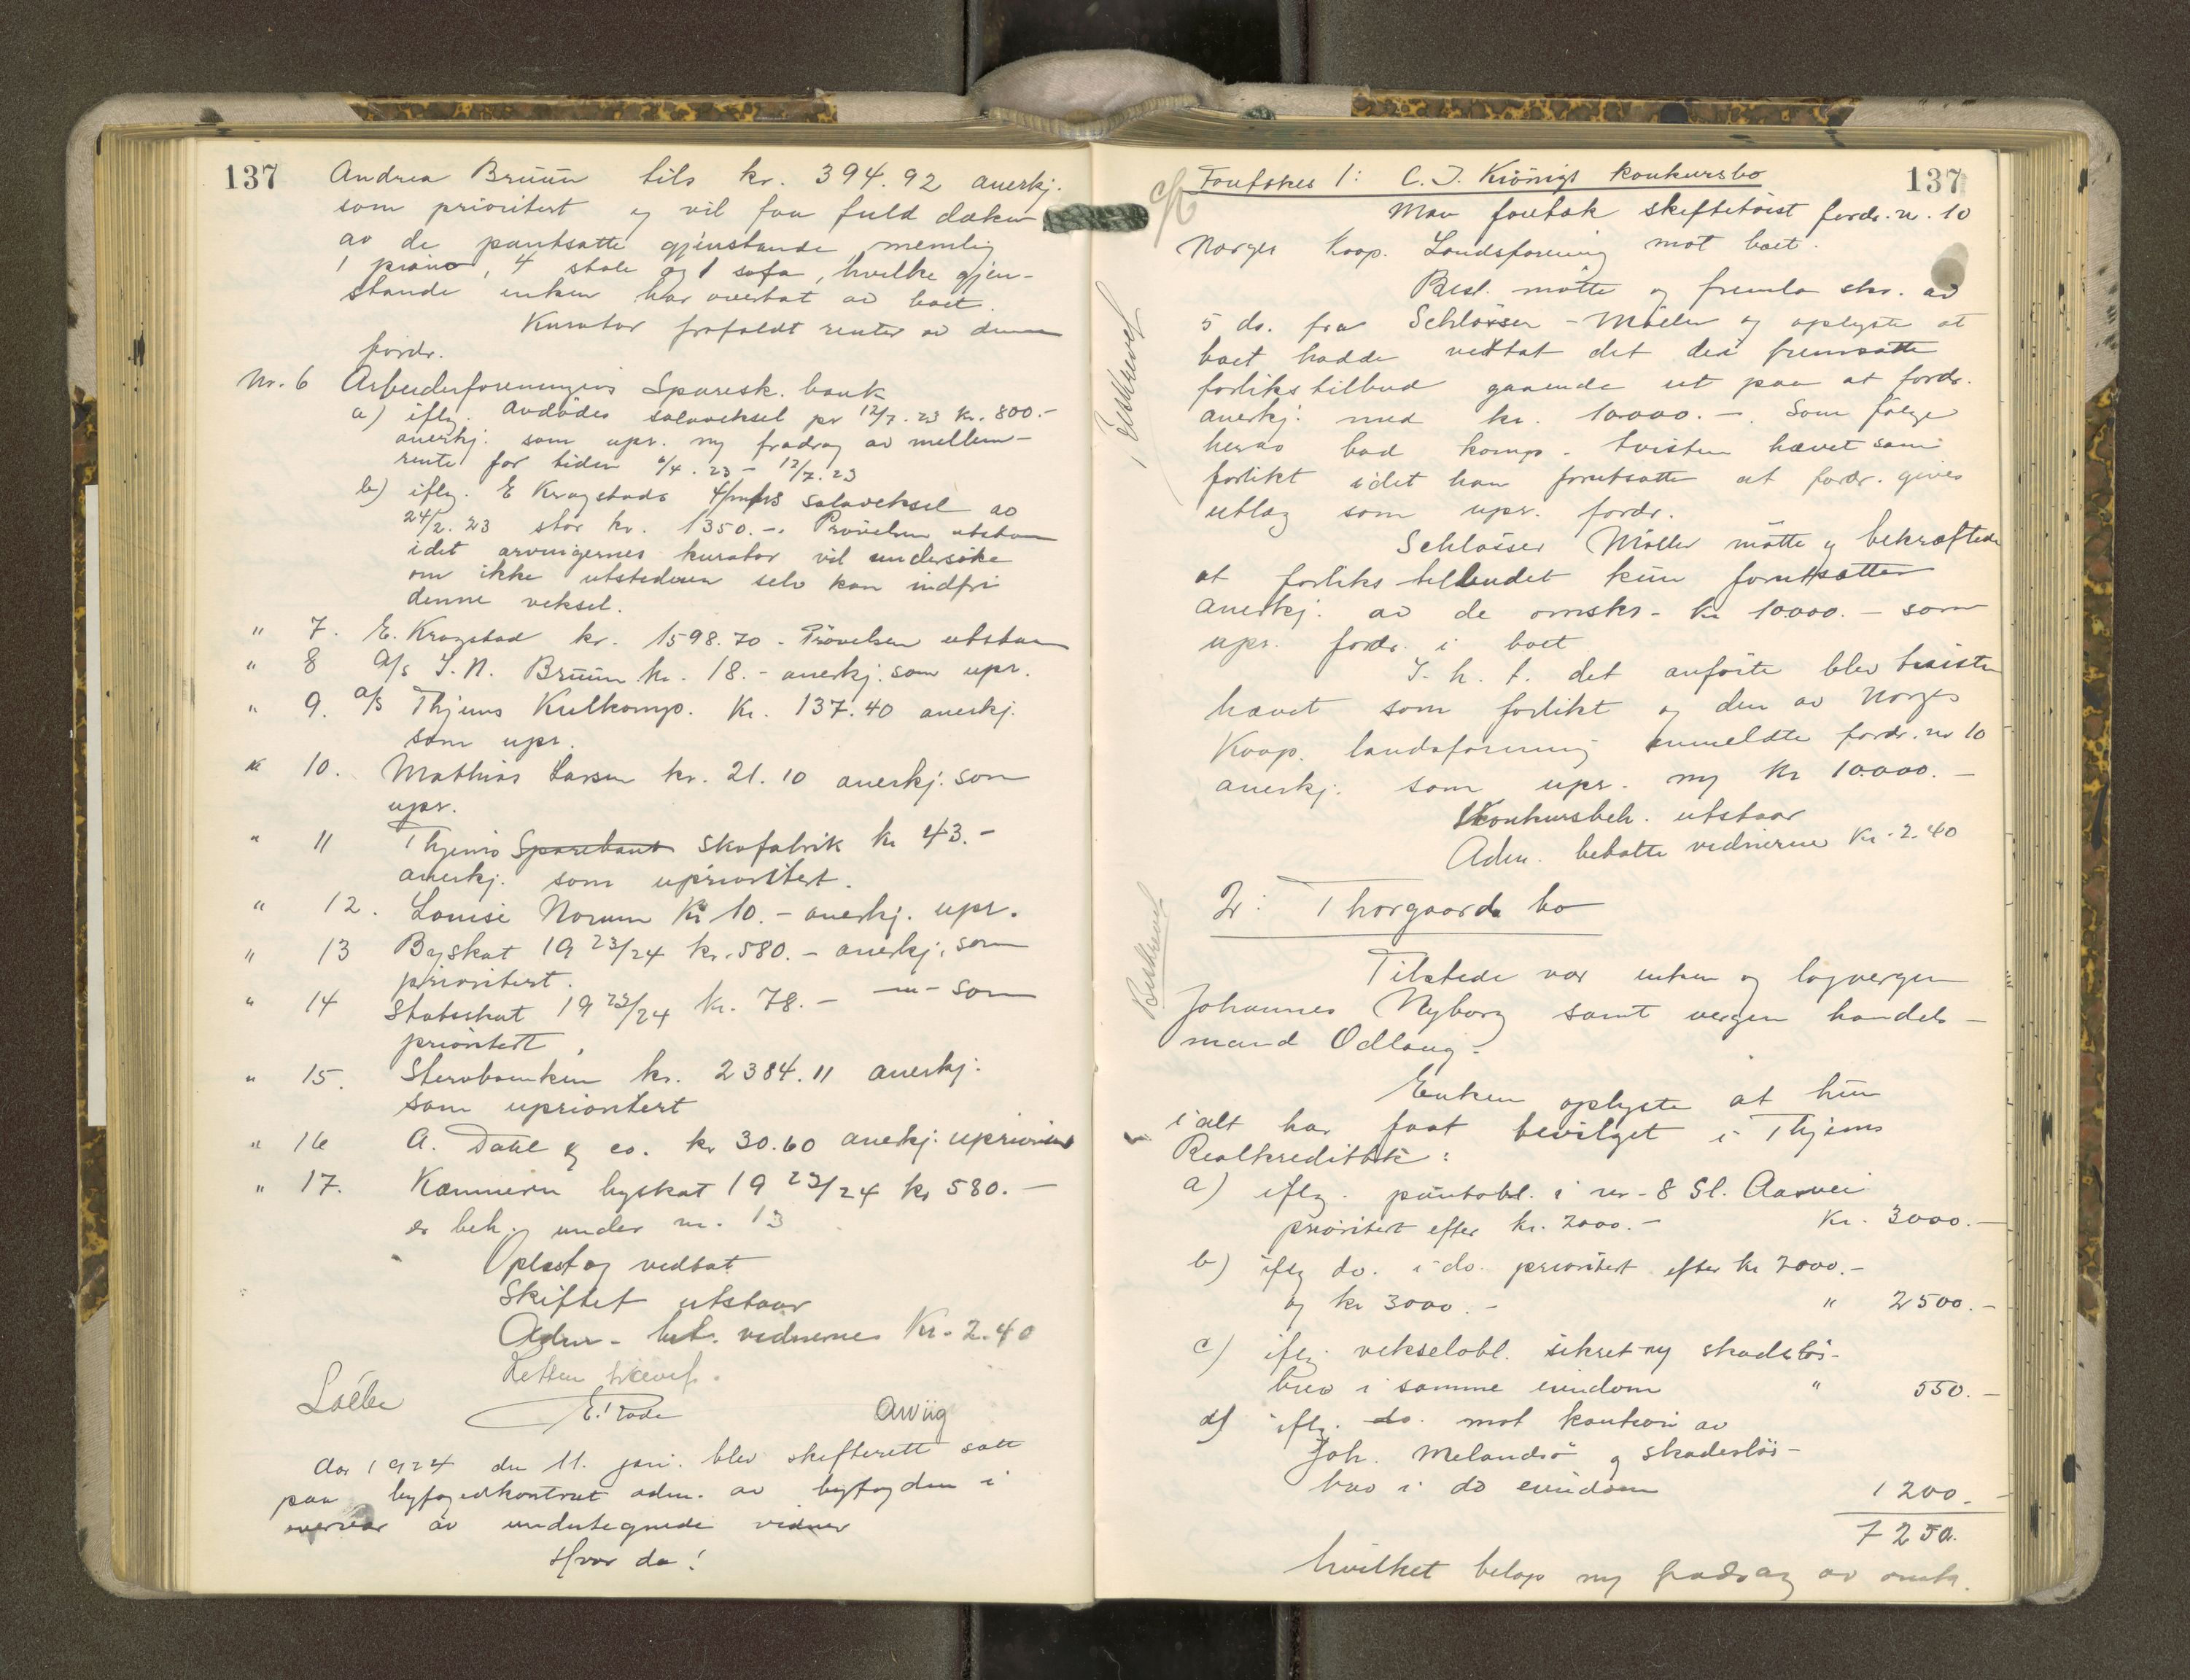 137
Andrea Bruun tils kr. 394.92 anerkj.
som prioritert og vil faa fuld dækn
av de pantsatte gjenstande nemlig
1 piano, 4 stole og 1 sofa, hvilke gjen-
stande enken har overtat av boet.
Kurator frafaldt renter av denne
fordr.
Nr. 6 Arbeiderforeningens Sparesk. bank
a) iflg. avdödes solaveksel pr 12/7. 23 kr. 800.-
anerkj. som upr. m/ fradrag av mellem-
rente for tiden 6/4. 23 - 12/7. 23
b) iflg. E Kragstads solaveksel av
24/2. 23 stor kr. 1350.-. Prövelsen utstaar
idet arvingernes kurator vil undersöke
om ikke utstederen selv kan indfri
denne veksel.
" 7. E. Kragstad kr. 1598.70 - Prövelsen utstaar
" 8 A/s I. N. Bruun kr. 18.- anerkj. som upr.
" 9. A/S Thjems Kulkomp. Kr. 137.40 anerkj.
som upr.
" 10. Mathias Larsen kr. 21.10 anerkj. som
upr.
" 11 Thjems Sparebank Skofabrik kr 43.-
anerkj. som uprioritert.
" 12. Louise Norum Kr 10.- anerkj. upr.
" 13 Byskat 19 23/24 kr. 580.- anerkj. som
prioritert.
" 14 Statsskat 19 23/24 kr. 78.- -"- som
prioritert.
" 15. kr. 2384.11 anerkj.
som uprioritert
" 16 A. Dahl & co. kr 30.60 anerkj. uprioritert
" 17. Kemneren byskat 19 23/24 kr 580.-
er beh. under nr. 13
Oplæst og vedtat
Skiftet utstaar
Adm. bet. vidnerne Kr. 2.40
Retten hævet.
E. Rode
AWiig
Aar 1924 den 11. jan. blev skifterett satt
paa byfogedkontoret adm. av byfogden i
overvær av undertegnede vidner
Hvor da!
137
Foretokes 1: C. J. Krönigs konkursbo
Man foretok skiftetvist fordr. nr. 10
Norges Koop. Landsforening mot boet.
Best. mötte og fremla skr. av
5 ds. fra Schlösser-Möller og oplyste at
boet hadde vedtat det der fremsatte
forlikstilbud gaaende ut paa at fordr.
anerkj. med kr. 10000.-. Som fölge
herav bad komp. tvisten hævet som
forlikt idet han forutsatte at fordr. gives
utlæg som upr. fordr.
Schlösser Möller mötte og bekræftede
at forlikstilbudet kun forutsatter
anerkj. av de omskr. kr 10000.- som
upr. fordr. i boet
I. h. t. det anförte blev tvisten
hævet som forlikt og den av Norges
Koop. landsforening anmeldte fordr. nr 10
anerkj. som upr. m/ kr 10000.-
Konkursbeh. utstaar
Adm. betalte vidnerne Kr. 2.40
2: Thorgaards bo
Tilstede var enken og lagvergen
Johannes Nyborg samt vergen handels-
mand Odlaug.
Enken oplyste at hun
ialt har faat bevilget i Thjems
Realkreditbk:
a) iflg. pantobl. i nr. 8 Sl. Aasvei
prioritert efter kr. 2000.- Kr. 3000.-
b) iflg do. i do. prioritert efter kr 2000.-
og kr 3000.- " 2500.-
c) iflg. vekselobl. sikret m/ skadeslös-
brev i samme eiendom " 550.-
d) iflg. do. mot kaution av
Joh. Melandsö og skadeslös-
brev i do eiendom 1200.-
7250.
hvilket belöp m/ fradrag av omk.